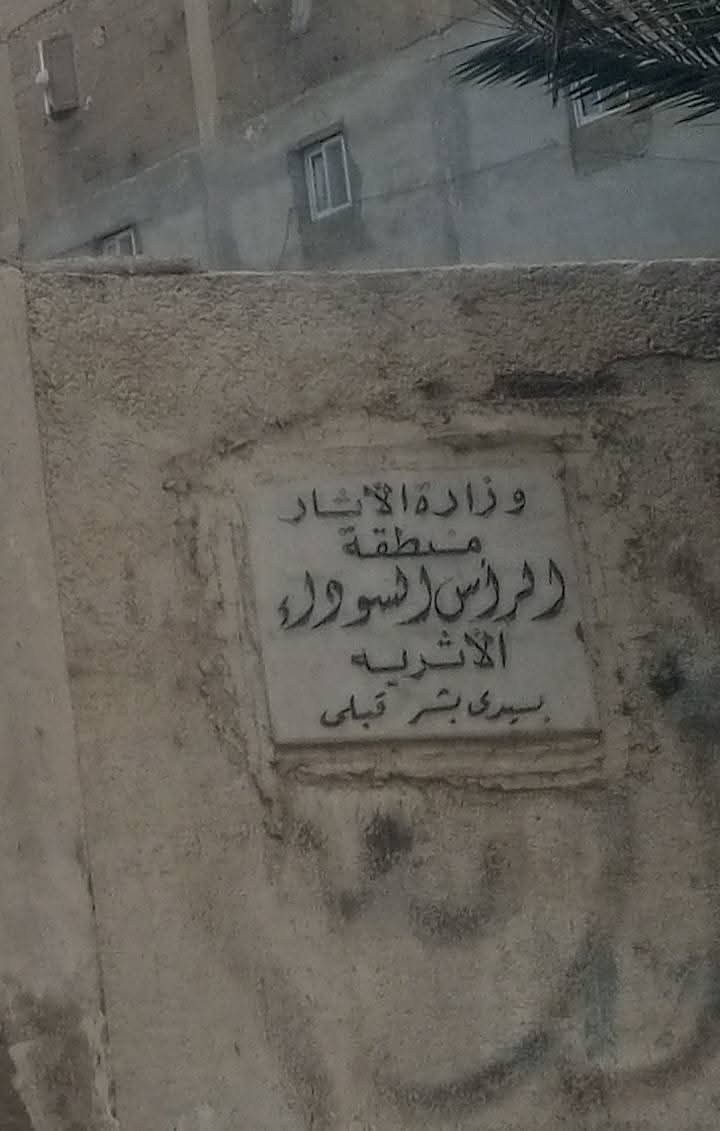 وزارة الأثار
منطقة
الرأس السوداء
الأثريه
بسيدى بشر قبلى